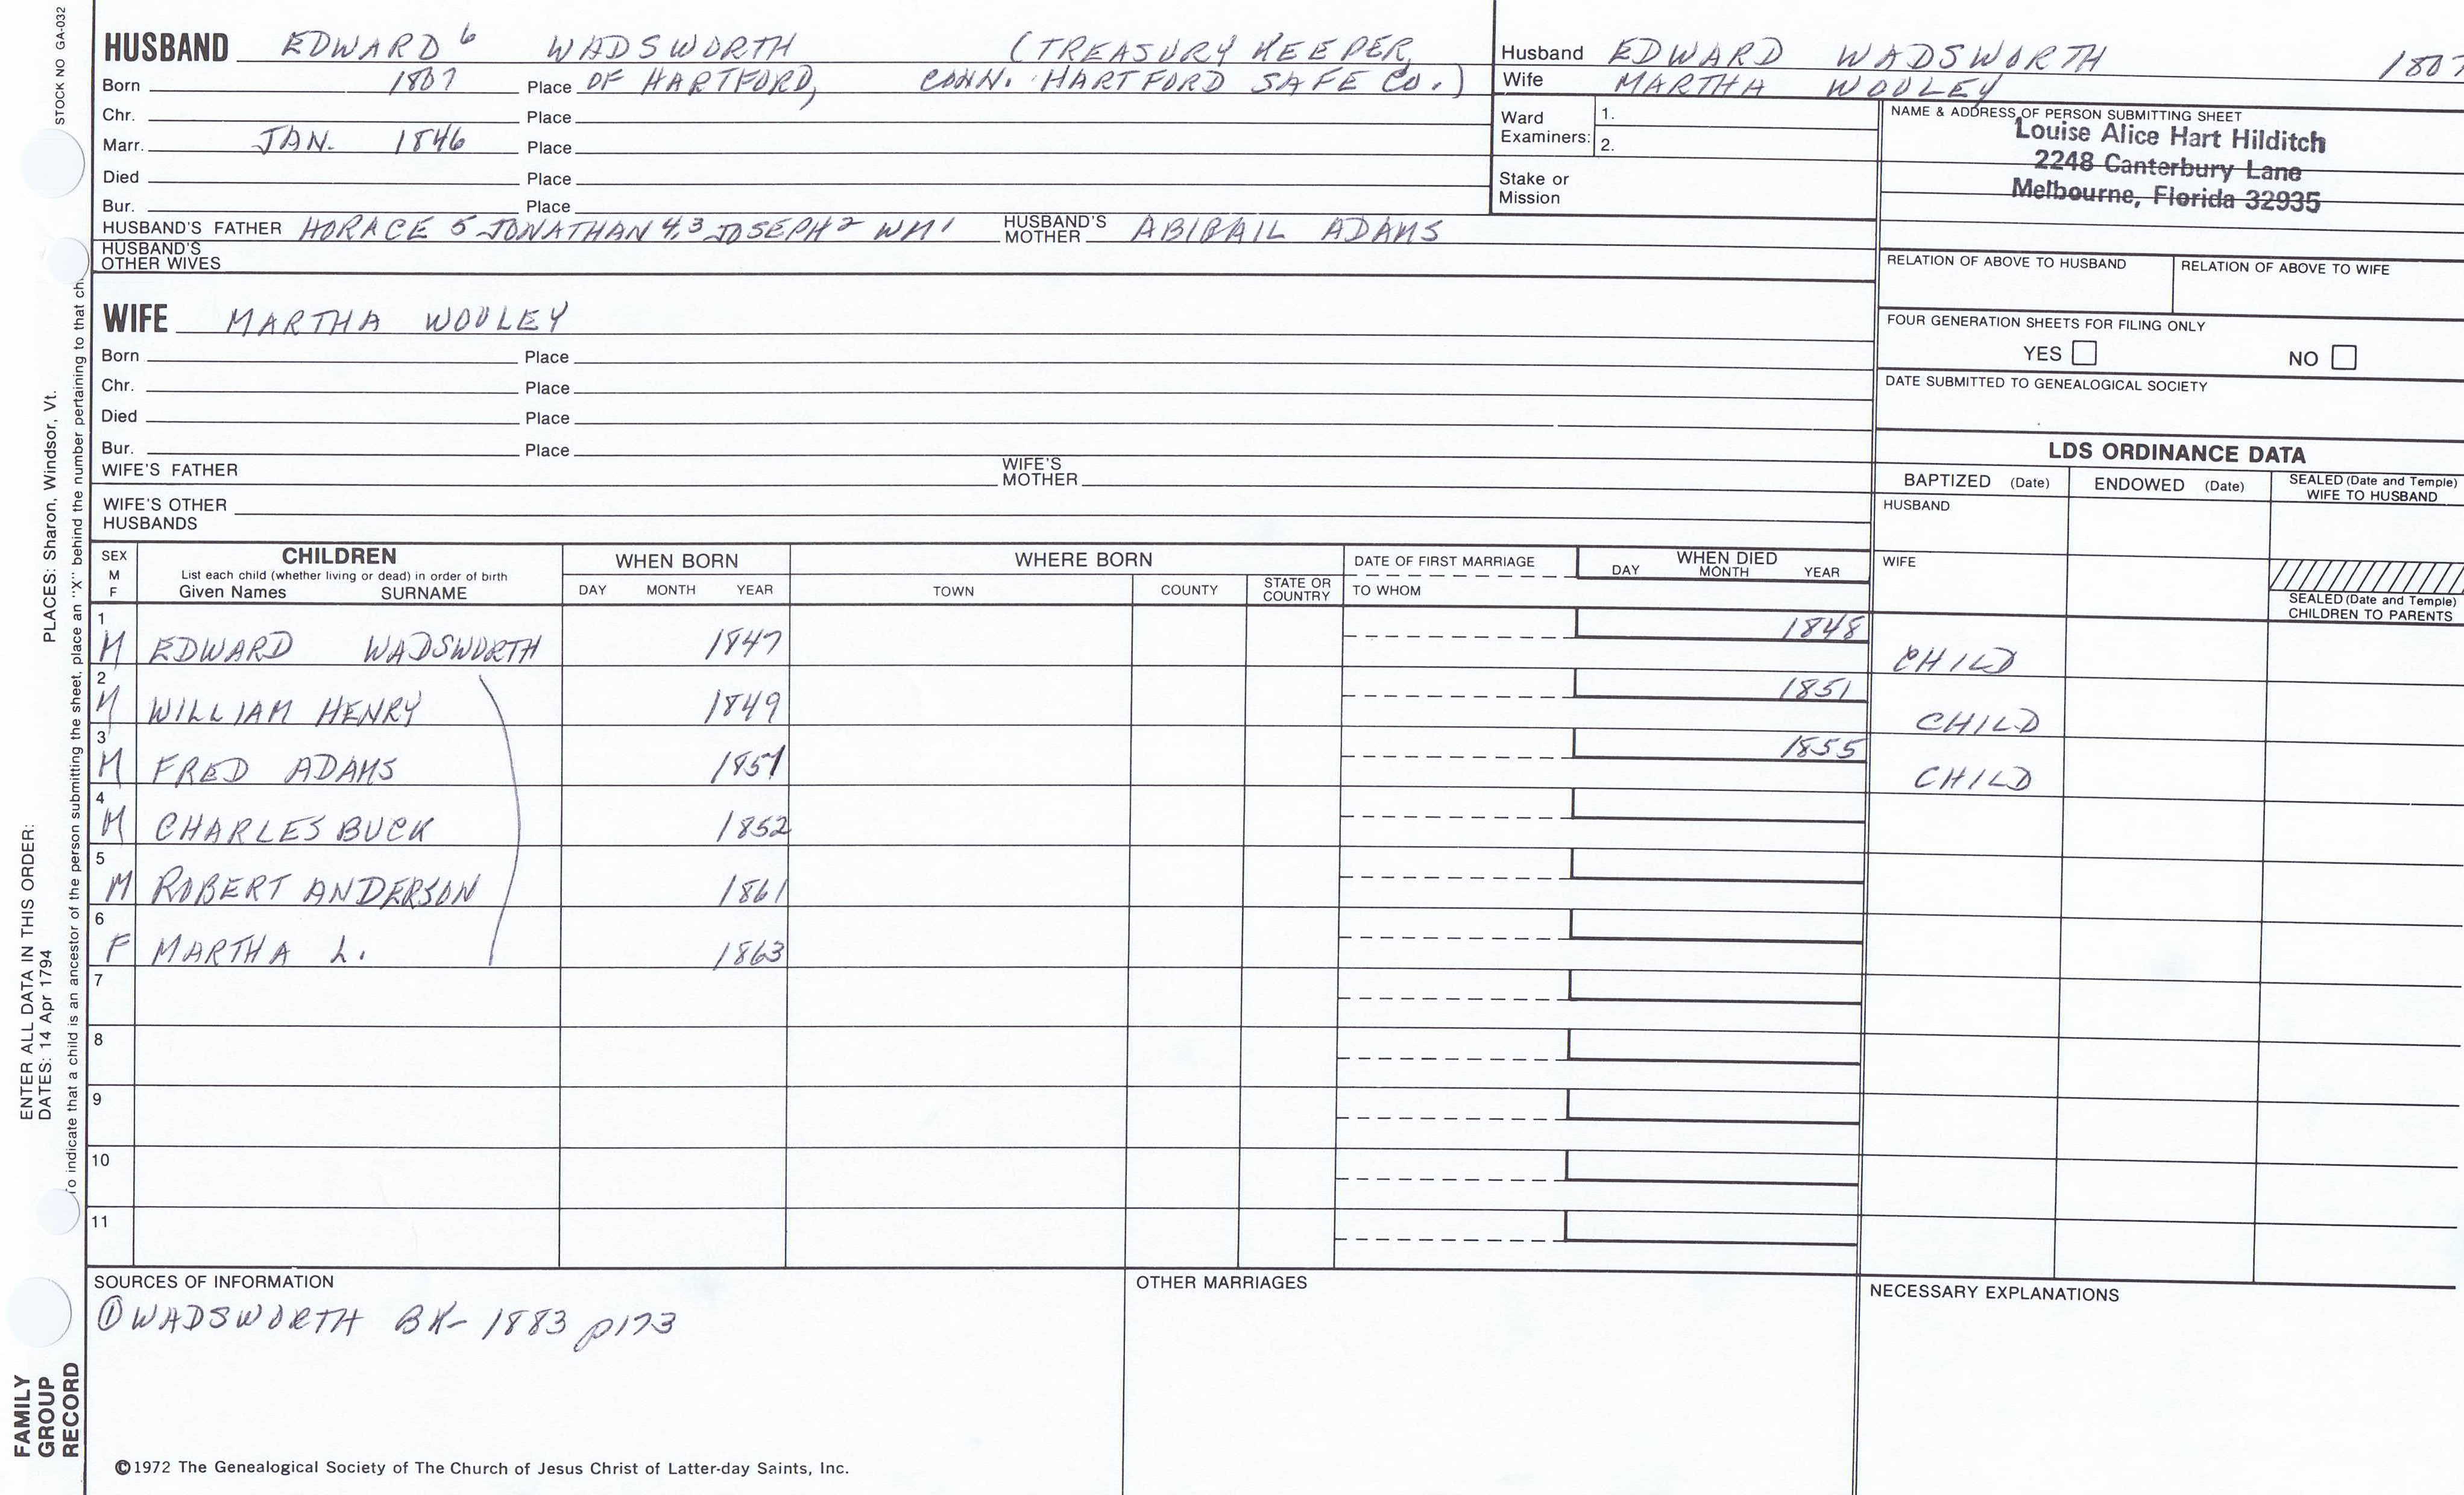 STOCK NO GA-032
HUSBAND EDWARD 6 WADSWORTH (TREASURY KEEPER,
Born 1807 Place OF HARTFORD, CONN. HARTFORD SAFE CO.)
Chr. Place
Marr. JAN. 1846 Place
Died Place
Bur. Place
HUSBAND'S FATHER HORACE 5 JONATHAN 4,3 JOSEPH 2 WM 1 HUSBAND'S MOTHER ABIGAIL ADAMS
HUSBAND'S OTHER WIVES
Husband EDWARD WADSWORTH 1807
Wife MARTHA WOOLEY
Ward Examiners: 1.
2.
Stake or Mission
NAME & ADDRESS OF PERSON SUBMITTING SHEET
Louise Alice Hart Hilditch
2248 Canterbury Lane
Melbourne, Florida 32935
RELATION OF ABOVE TO HUSBAND RELATION OF ABOVE TO WIFE
FOUR GENERATION SHEETS FOR FILING ONLY
YES NO
DATE SUBMITTED TO GENEALOGICAL SOCIETY
WIFE MARTHA WOOLEY
Born Place
Chr. Place
Died Place
Bur. Place
WIFE'S FATHER WIFE'S MOTHER
WIFE'S OTHER HUSBANDS
LDS ORDINANCE DATA
BAPTIZED (Date) ENDOWED (Date) SEALED (Date and Temple) WIFE TO HUSBAND
HUSBAND
WIFE
SEALED (Date and Temple) CHILDREN TO PARENTS
SEX M F
CHILDREN
List each child (whether living or dead) in order of birth
Given Names SURNAME
WHEN BORN
DAY MONTH YEAR
WHERE BORN
TOWN COUNTY STATE OR COUNTRY
DATE OF FIRST MARRIAGE
TO WHOM
WHEN DIED
DAY MONTH YEAR
1 M EDWARD WADSWORTH 1847 1848 CHILD
2 M WILLIAM HENRY 1849 1851 CHILD
3 M FRED ADAMS 1851 1855 CHILD
4 M CHARLES BUCK 1852
5 M ROBERT ANDERSON 1861
6 F MARTHA L. 1863
7
8
9
10
11
SOURCES OF INFORMATION
① WADSWORTH BK- 1883 p173
OTHER MARRIAGES
NECESSARY EXPLANATIONS
©1972 The Genealogical Society of The Church of Jesus Christ of Latter-day Saints, Inc.
FAMILY GROUP RECORD
ENTER ALL DATA IN THIS ORDER:
DATES: 14 Apr 1794
PLACES: Sharon, Windsor, Vt.
To indicate that a child is an ancestor of the person submitting the sheet, place an "X" behind the number pertaining to that ch.